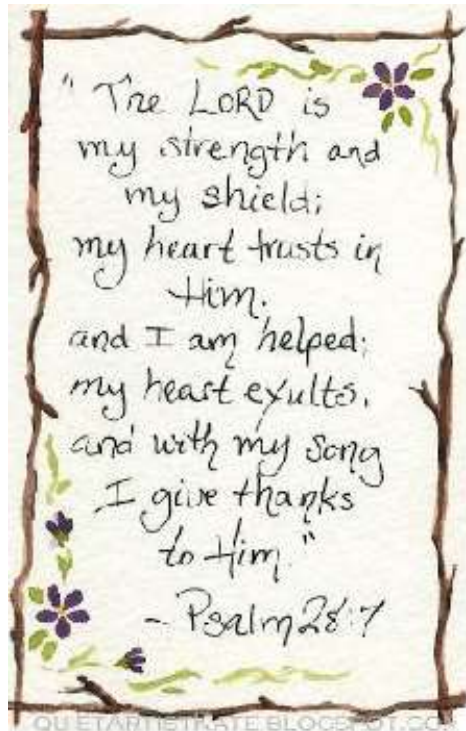 "The LORD is
my strength and
my shield;
my heart trusts in
Him,
and I am helped;
my heart exults,
and with my song
I give thanks
to Him."
- Psalm 28:7
QUIETARTISTKATE.BLOGSPOT.COM